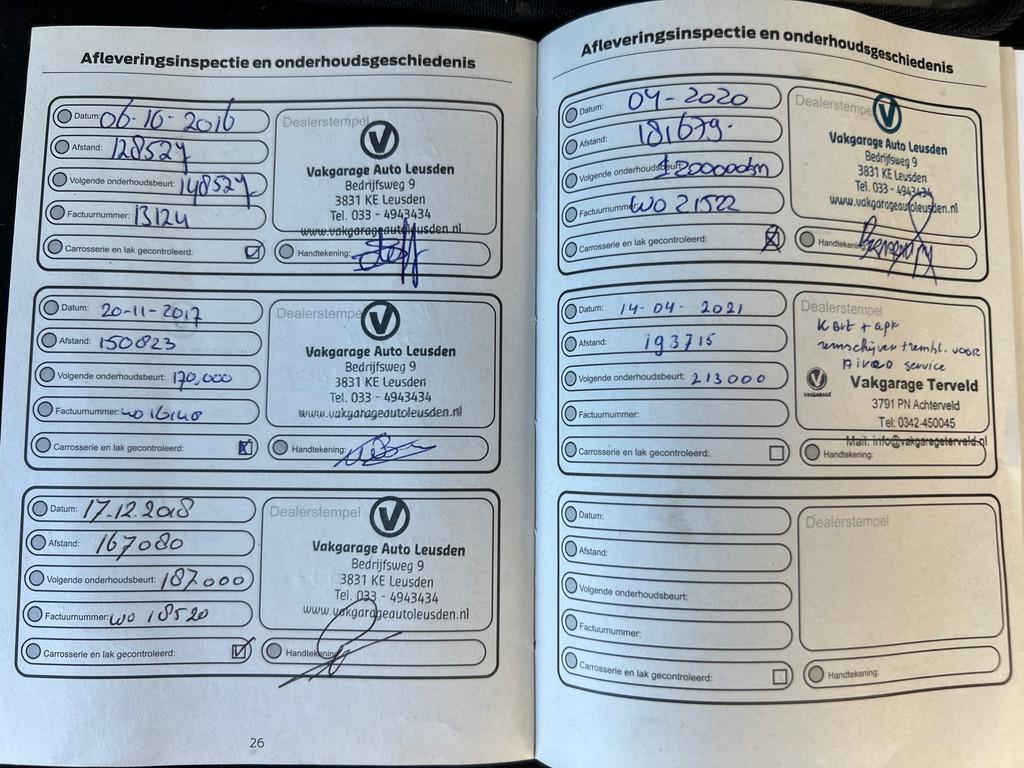 Afleveringsinspectie en onderhoudsgeschiedenis
Datum: 06-10-2016
Afstand: 128527
Volgende onderhoudsbeurt: 148527
Factuurnummer: 13124
Carrosserie en lak gecontroleerd:
Dealerstempel
Vakgarage Auto Leusden
Bedrijfsweg 9
3831 KE Leusden
Tel. 033 - 4943434
www.vakgarageautoleusden.nl
Handtekening:
Datum: 20-11-2017
Afstand: 150823
Volgende onderhoudsbeurt: 170,000
Factuurnummer: wo 16140
Carrosserie en lak gecontroleerd:
Dealerstempel
Vakgarage Auto Leusden
Bedrijfsweg 9
3831 KE Leusden
Tel. 033 - 4943434
www.vakgarageautoleusden.nl
Handtekening:
Datum: 17-12-2018
Afstand: 167080
Volgende onderhoudsbeurt: 187.000
Factuurnummer: wo 18520
Carrosserie en lak gecontroleerd:
Dealerstempel
Vakgarage Auto Leusden
Bedrijfsweg 9
3831 KE Leusden
Tel. 033 - 4943434
www.vakgarageautoleusden.nl
Handtekening:
26
Afleveringsinspectie en onderhoudsgeschiedenis
Datum: 04-2020
Afstand: 181679-
Volgende onderhoudsbeurt:
Factuurnummer: WO 21522
Carrosserie en lak gecontroleerd:
Dealerstempel
Vakgarage Auto Leusden
Bedrijfsweg 9
3831 KE Leusden
Tel. 033 - 4943434
www.vakgarageautoleusden.nl
Handtekening:
Datum: 14-04-2021
Afstand: 193715
Volgende onderhoudsbeurt: 213000
Factuurnummer:
Carrosserie en lak gecontroleerd:
Dealerstempel
K Brt + apk
remschijven + rembl. voor
Airco service
VAKGARAGE
Vakgarage Terveld
3791 PN Achterveld
Tel: 0342-450045
Mail: info@vakgarageterveld.nl
Handtekening:
Datum:
Afstand:
Volgende onderhoudsbeurt:
Factuurnummer:
Carrosserie en lak gecontroleerd:
Dealerstempel
Handtekening: